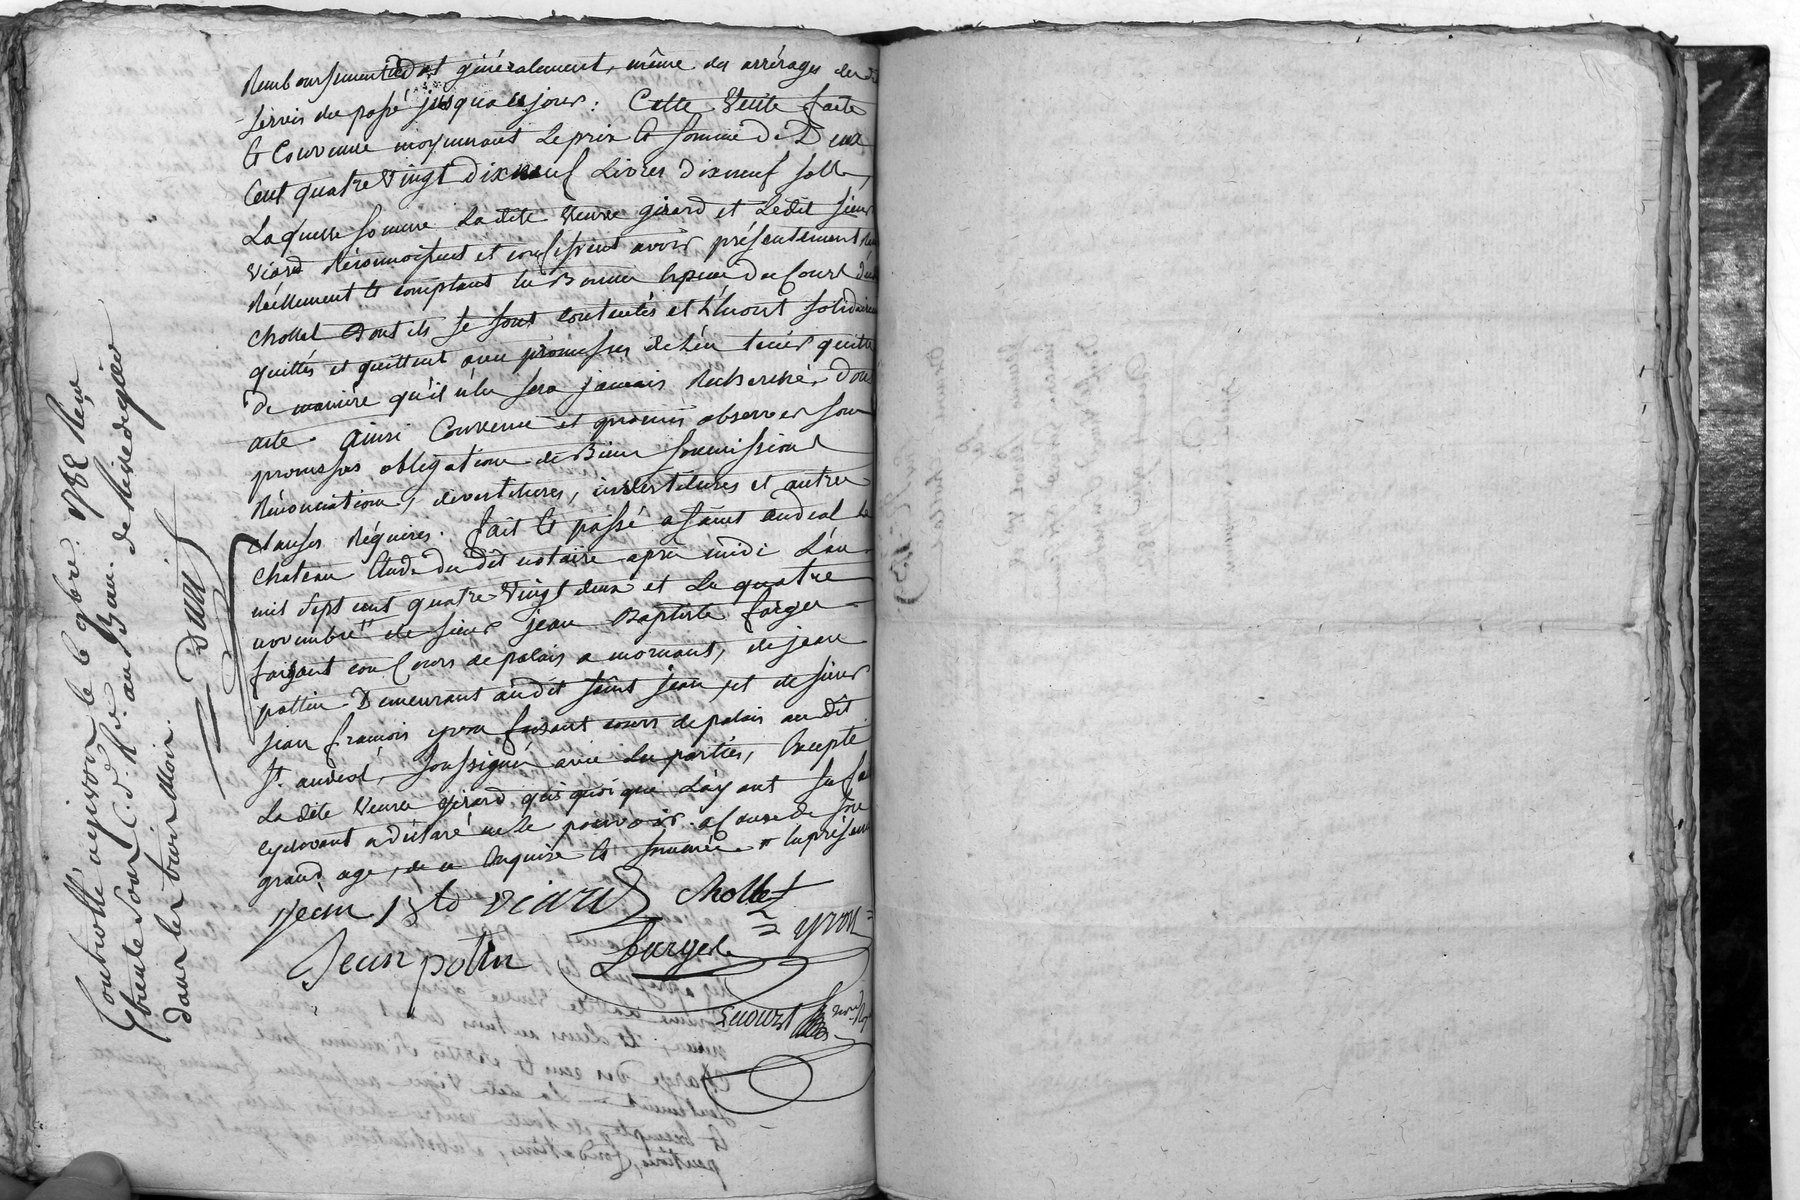 Remboursement et généralement, même des arrérages des d
servis du passé jusqua ce jour : Cette Vente faite
& Convenue moyennant le prix & somme de Deux
Cent quatre Vingt dixneuf Livres dixneuf sols,
Laquelle somme La dite Veuve girard et Ledit sieur
Viard Reconnoissent et confessent avoir présentement
Réellement & comptant en Bonnes Espèces du Court
chollet Dont ils se sont contentés et L'en ont solidairem
quittés et quittent avec promesses de L'en tenir quitte
de manière qu'il n'en sera jamais Recherché, Dont
acte. Ainsi Convenu et promis observer sous
promesses, obligations de Biens soumissions
Rénonciations, devestitures, investitures et autres
clauses Réquises. fait & passé a saint andeol Le
chateau Etude du dit notaire apres midi L'an
mil sept cent quatre-Vingt deux et Le quatre
novembre de sieur jean Baptiste farges
faisant son Cours de palais a mornant, de jean
pottin Demeurant audit saint jean, et de sieur
jean françois yvon faisant cours de palais audit
St. andeol, soussignés avec les parties, Excepté
La dite Veuve girard qui quoi que L'ayant
cydevant a déclaré ne le pouvoir a Cause de son
grand age, de ce Enquise & sommée
jean Bte Viard chollet
yvon
jean potin farges
Controllé a givors le 6 9bre. 1782 Reçu
trente sous
dans les trois mois.